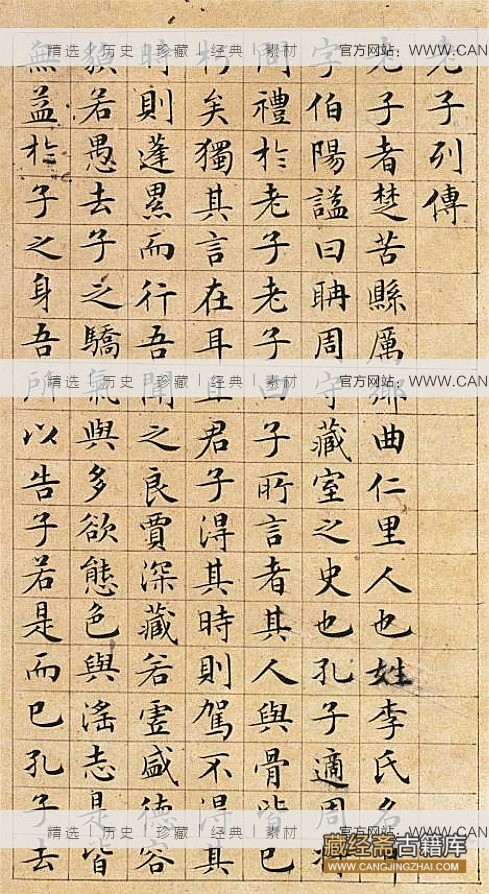 老子列傳
老子者楚苦縣厲鄉曲仁里人也姓李氏名耳
字伯陽謚曰聃周守藏室之史也孔子適周將
問禮於老子老子曰子所言者其人與骨皆已
朽矣獨其言在耳且君子得其時則駕不得其
時則蓬累而行吾聞之良賈深藏若虛盛德容
貌若愚去子之驕氣與多欲態色與滛志是皆
無益於子之身吾所以告子若是而已孔子去
精选 | 历史 | 珍藏 | 经典 | 素材 官方网站：WWW.CAN
精选 | 历史 | 珍藏 | 经典 | 素材 官方网站：WWW.CAN
精选 | 历史 | 珍藏 | 经典 | 素材 官方网站：WWW.CAN
藏经斋古籍库
WWW.CANGJINGZHAI.COM